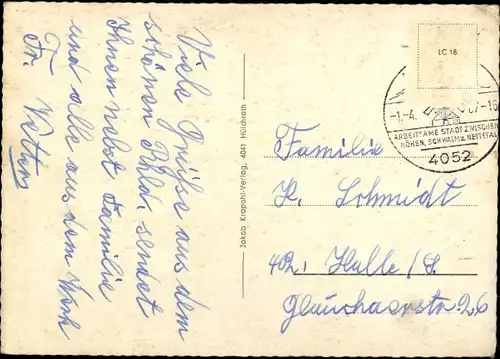 Viele Grüße aus dem
schönen Rhld. sendet
Ihnen nebst Familie
und alle aus dem Werk
Fr. Vetten
Jakob Krapohl-Verlag, 4041 Hülchrath
LC 18
-1.-4. 67-18
ARBEITSAME STADT ZWISCHEN
HÖHEN, SCHWALM U. NETTETAL
4052
Familie
K. Schmidt
402, Halle/S.
Glauchaerstr. 26